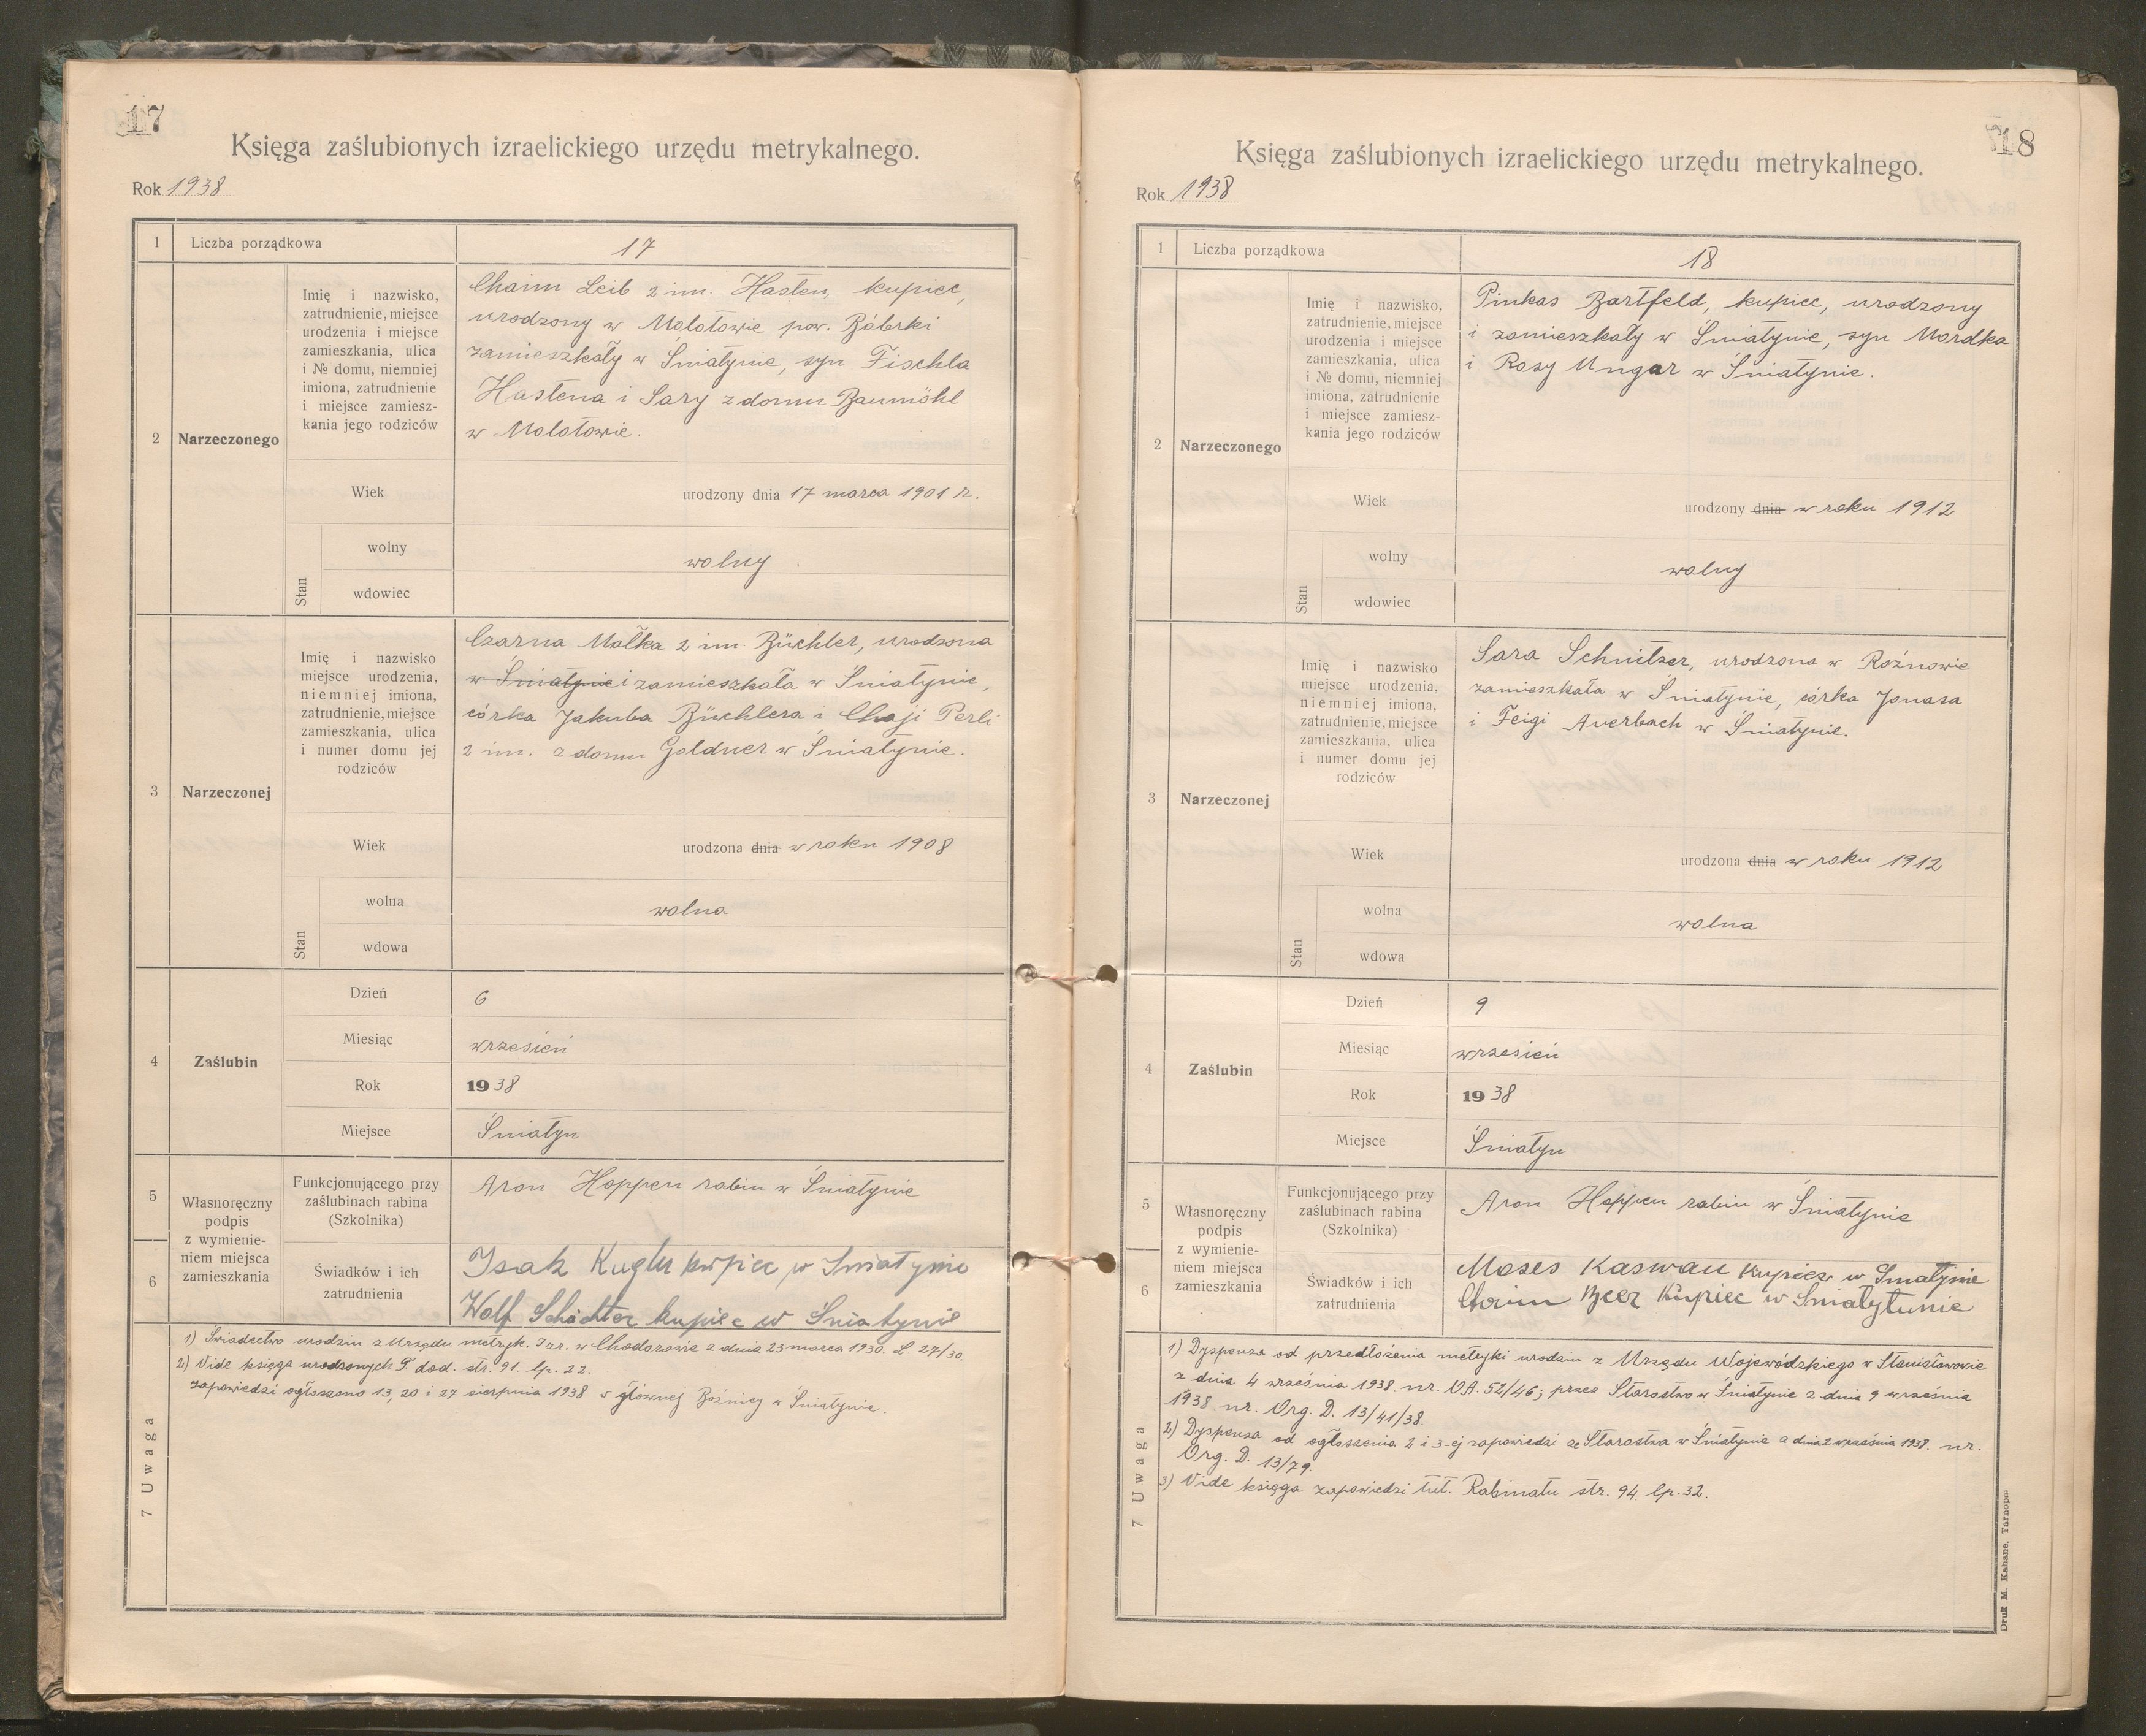 17
Księga zaślubionych izraelickiego urzędu metrykalnego.
Rok 1938
1 Liczba porządkowa 17
2 Narzeczonego
Imię i nazwisko,
zatrudnienie, miejsce
urodzenia i miejsce
zamieszkania, ulica
i № domu, niemniej
imiona, zatrudnienie
i miejsce zamiesz-
kania jego rodziców
Chaim Leib 2 im. Hasten, kupiec,
urodzony w Mołotowie pow. Bóbrki
zamieszkały w Śniatynie, syn Fischla
Hastena i Sary z domu Baumöhl
w Mołotowie.
Wiek
urodzony dnia 17 marca 1901 r.
Stan
wolny
wdowiec
wolny
3 Narzeczonej
Imię i nazwisko
miejsce urodzenia,
niemniej imiona,
zatrudnienie, miejsce
zamieszkania, ulica
i numer domu jej
rodziców
Czarna Małka 2 im. Büchler, urodzona
w Śniatynie i zamieszkała w Śniatynie,
córka Jakuba Büchlera i Chaji Perli
2 im. z domu Goldner w Śniatynie.
Wiek
urodzona dnia w roku 1908
Stan
wolna
wdowa
wolna
4 Zaślubin
Dzień 6
Miesiąc wrzesień
Rok 1938
Miejsce Śniatyn
5
6
Własnoręczny
podpis
z wymienie-
niem miejsca
zamieszkania
Funkcjonującego przy
zaślubinach rabina
(Szkolnika)
Aron Hoppen rabin w Śniatynie
Świadków i ich
zatrudnienia
Isak Kugler kupiec w Śniatynie
Wolf Schächter kupiec w Śniatynie
7 Uwaga
1) Świadectwo urodzin z Urzędu metryk. Izr. w Chodorowie z dnia 23 marca 1930. L. 27/30.
2) Vide księga urodzonych T. dod. str. 91. lp. 22.
zapowiedzi ogłoszono 13, 20 i 27 sierpnia 1938 w głównej Bóżnicy w Śniatynie.
18
Księga zaślubionych izraelickiego urzędu metrykalnego.
Rok 1938
1 Liczba porządkowa 18
2 Narzeczonego
Imię i nazwisko,
zatrudnienie, miejsce
urodzenia i miejsce
zamieszkania, ulica
i № domu, niemniej
imiona, zatrudnienie
i miejsce zamiesz-
kania jego rodziców
Pinkas Bartfeld, kupiec, urodzony
i zamieszkały w Śniatynie, syn Mordka
i Rosy Ungar w Śniatynie.
Wiek
urodzony dnia w roku 1912
Stan
wolny
wdowiec
wolny
3 Narzeczonej
Imię i nazwisko
miejsce urodzenia,
niemniej imiona,
zatrudnienie, miejsce
zamieszkania, ulica
i numer domu jej
rodziców
Sara Schnitzer, urodzona w Rożnowie
zamieszkała w Śniatynie, córka Jonasa
i Feigi Auerbach w Śniatynie.
Wiek
urodzona dnia w roku 1912
Stan
wolna
wdowa
wolna
4 Zaślubin
Dzień 9
Miesiąc wrzesień
Rok 1938
Miejsce Śniatyn
5
6
Własnoręczny
podpis
z wymienie-
niem miejsca
zamieszkania
Funkcjonującego przy
zaślubinach rabina
(Szkolnika)
Aron Hoppen rabin w Śniatynie
Świadków i ich
zatrudnienia
Moses Kaswan Kupiec w Śniatynie
Chaim Beer Kupiec w Śniatytunie
7 Uwaga
1) Dyspensa od przedłożenia metryki urodzin z Urzędu Wojewódzkiego w Stanisławowie
z dnia 4 września 1938. nr. VA. 52/46; przez Starostwo w Śniatynie z dnia 9 września
1938. nr. Org. D. 13/41/38.
2) Dyspensa od ogłoszenia 2 i 3-ej zapowiedzi ze Starostwa w Śniatynie z dnia 2 września 1938. nr.
Org. D. 13/79.
3) Vide księga zapowiedzi tut. Rabinatu str. 94 lp. 32.
Druk M. Kahane, Tarnopol